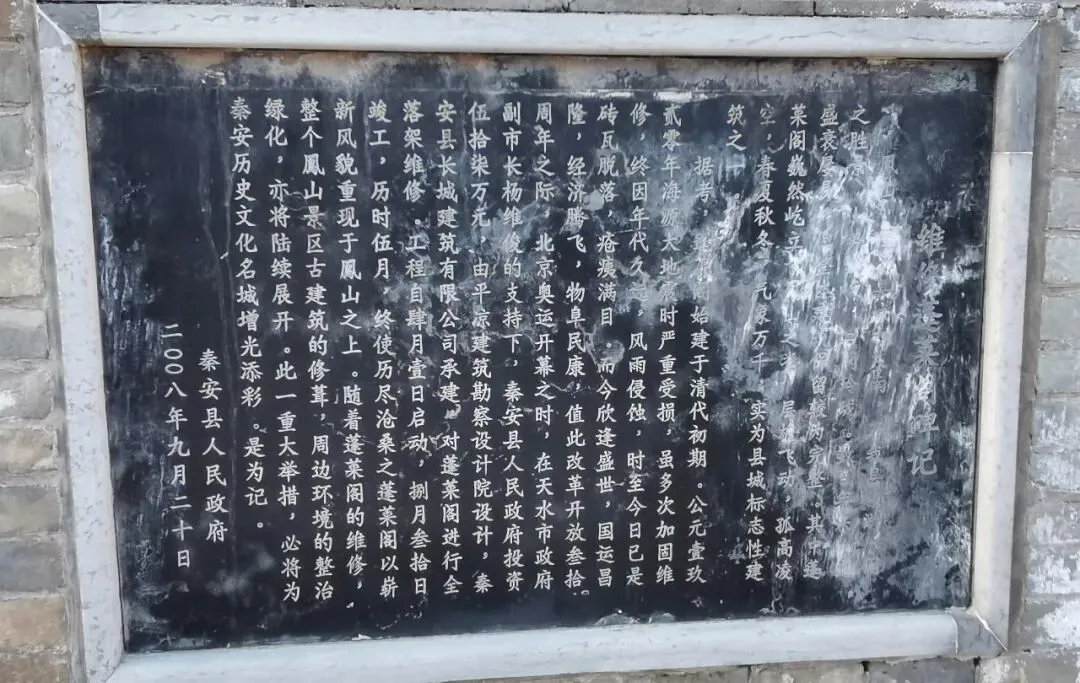 维修蓬莱阁碑记
凤山
之胜景
盛衰 留较为完整。其中蓬
莱阁巍然屹立 层 飞动,孤高凌
空,春夏秋冬 气象万千 实为县城标志性建
筑之一
据考, 始建于清代初期。公元壹玖
贰零年海源大地震时严重受损,虽多次加固维
修,终因年代久 ,风雨侵蚀,时至今日已是
砖瓦脱落,疮痍满目。而今欣逢盛世,国运昌
隆,经济腾飞,物阜民康,值此改革开放叁拾
周年之际,北京奥运开幕之时,在天水市政府
副市长杨维俊的支持下,秦安县人民政府投资
伍拾柒万元,由平凉建筑勘察设计院设计,秦
安县长城建筑有限公司承建,对蓬莱阁进行全
落架维修。工程自肆月壹日启动,捌月叁拾日
竣工,历时伍月,终使历尽沧桑之蓬莱阁以崭
新风貌重现于鳳山之上。随着蓬莱阁的维修,
整个鳳山景区古建筑的修葺,周边环境的整治
绿化,亦将陆续展开。此一重大举措,必将为
秦安历史文化名城增光添彩。是为记。
秦安县人民政府
二〇〇八年九月二十日